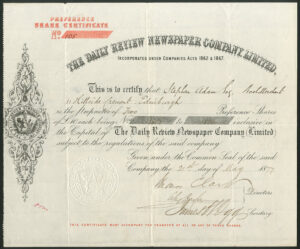 PREFERENCE
SHARE CERTIFICATE
No
THE DAILY REVIEW NEWSPAPER COMPANY, LIMITED.
INCORPORATED UNDER COMPANIES ACTS 1862 & 1867.
This is to certify that Stephen Adam Esq
Crescent Edinburgh
is the Proprietor of Two Preference Shares
of each being inclusive in
the Capital of The Daily Review Newspaper Company (Limited)
subject to the regulations of the said company
Given under the Common Seal of the said
Company 21st day of May
Clark
Directors
Secretary
THIS CERTIFICATE MUST ACCOMPANY THE TRANSFER OF ALL OR ANY OF THESE SHARES.